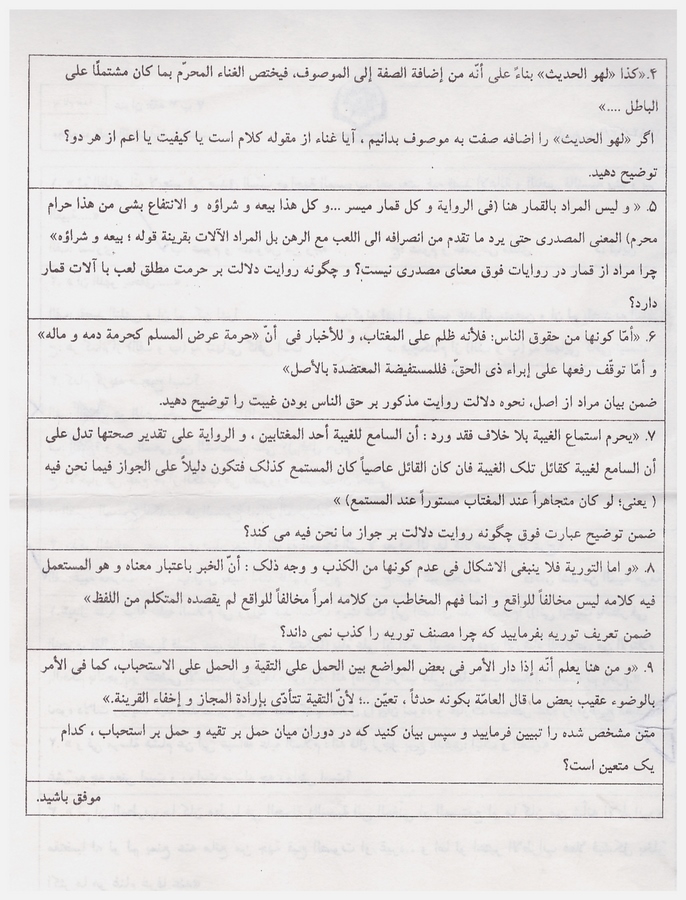 ۴.«کذا «لهو الحدیث» بناءً علی أنّه من إضافة الصفة إلی الموصوف، فیختص الغناء المحرّم بما کان مشتملًا علی
الباطل ....»
اگر «لهو الحدیث» را اضافه صفت به موصوف بدانیم ، آیا غناء از مقوله کلام است یا کیفیت یا اعم از هر دو؟
توضیح دهید.
۵. « و لیس المراد بالقمار هنا (فی الروایة و کل قمار میسر ...و کل هذا بیعه و شراؤه و الانتفاع بشی من هذا حرام
محرم) المعنی المصدری حتی یرد ما تقدم من انصرافه الی اللعب مع الرهن بل المراد الآلات بقرینة قوله ؛ بیعه و شراؤه»
چرا مراد از قمار در روایات فوق معنای مصدری نیست؟ و چگونه روایت دلالت بر حرمت مطلق لعب با آلات قمار
دارد؟
۶. «أمّا کونها من حقوق الناس: فلأنه ظلم علی المغتاب، و للأخبار فی أنّ «حرمة عرض المسلم کحرمة دمه و ماله»
و أمّا توقّف رفعها علی إبراء ذی الحقّ، فللمستفیضة المعتضدة بالأصل»
ضمن بیان مراد از اصل، نحوه دلالت روایت مذکور بر حق الناس بودن غیبت را توضیح دهید.
۷. «یحرم استماع الغیبة بلا خلاف فقد ورد : أن السامع للغیبة أحد المغتابین ، و الروایة علی تقدیر صحتها تدل علی
أن السامع لغیبة کقائل تلک الغیبة فان کان القائل عاصیاً کان المستمع کذلک فتکون دلیلاً علی الجواز فیما نحن فیه
( یعنی؛ لو کان متجاهراً عند المغتاب مستوراً عند المستمع) »
ضمن توضیح عبارت فوق چگونه روایت دلالت بر جواز ما نحن فیه می کند؟
۸. «و اما التوریة فلا ینبغی الاشکال فی عدم کونها من الکذب و وجه ذلک : أنّ الخبر باعتبار معناه و هو المستعمل
فیه کلامه لیس مخالفاً للواقع و انما فهم المخاطب من کلامه امراً مخالفاً للواقع لم یقصده المتکلم من اللفظ»
ضمن تعریف توریه بفرمایید که چرا مصنف توریه را کذب نمی داند؟
۹. «و من هنا یعلم أنّه إذا دار الأمر فی بعض المواضع بین الحمل علی التقیة و الحمل علی الاستحباب، کما فی الأمر
بالوضوء عقیب بعض ما قال العامّة بکونه حدثاً ، تعیّن ..؛ لأنّ التقیة تتأدّی بإرادة المجاز و إخفاء القرینة.»
متن مشخص شده را تبیین فرمایید و سپس بیان کنید که در دوران میان حمل بر تقیه و حمل بر استحباب ، کدام
یک متعین است؟
موفق باشید.